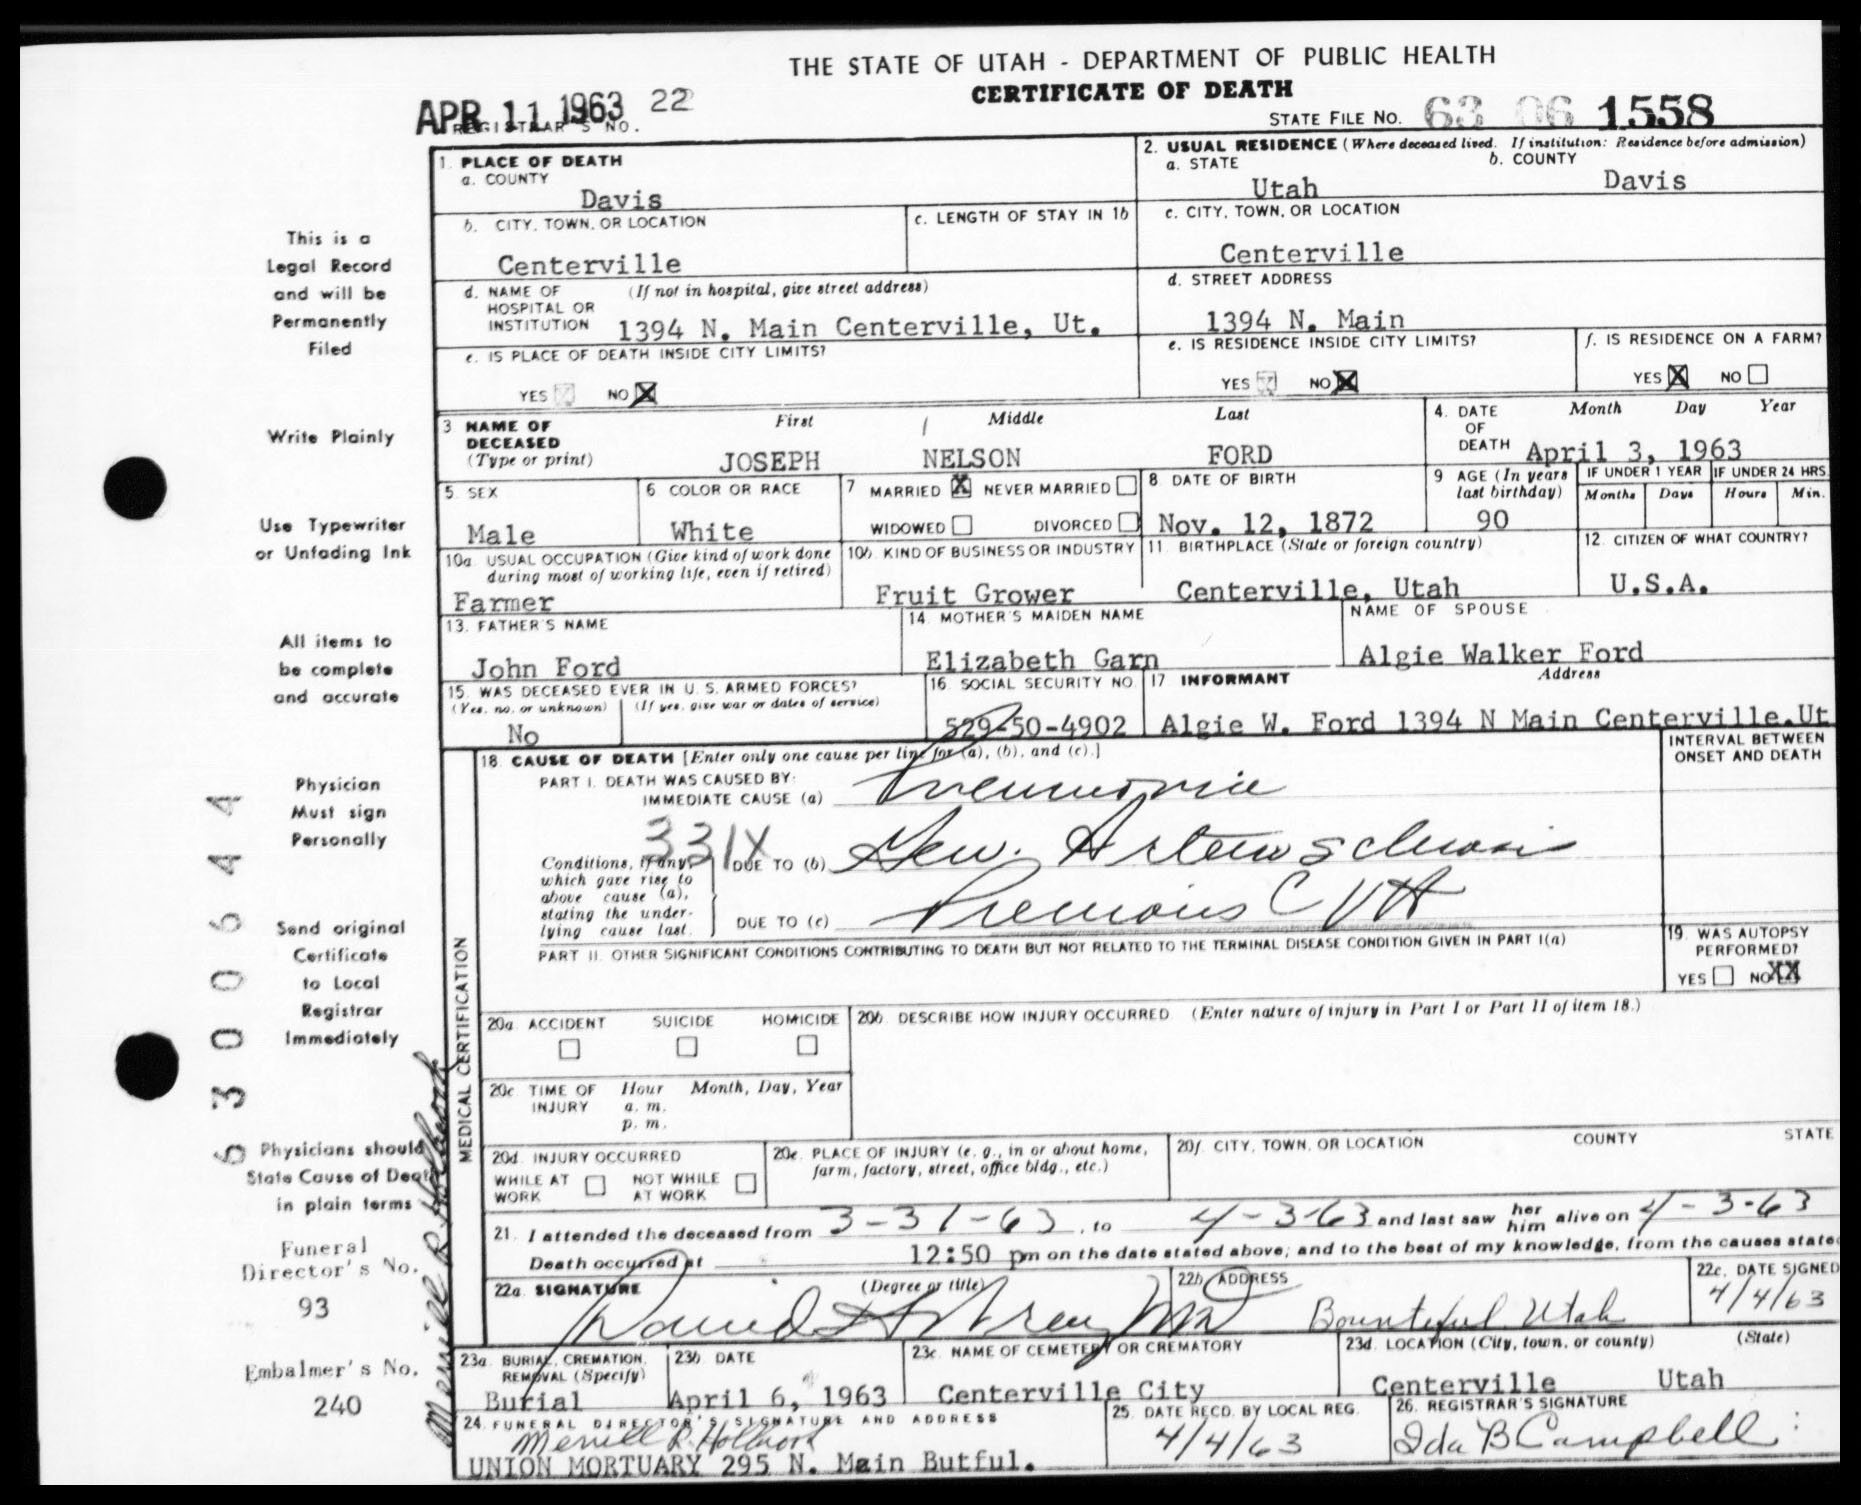 THE STATE OF UTAH - DEPARTMENT OF PUBLIC HEALTH
CERTIFICATE OF DEATH
APR 11 1963 22
REGISTRAR'S NO.
STATE FILE NO. 63 06 1558
1. PLACE OF DEATH
a. COUNTY
Davis
2. USUAL RESIDENCE (Where deceased lived. If institution: Residence before admission)
a. STATE
Utah
b. COUNTY
Davis
b. CITY, TOWN, OR LOCATION
Centerville
c. LENGTH OF STAY IN 1b
c. CITY, TOWN, OR LOCATION
Centerville
d. NAME OF HOSPITAL OR INSTITUTION
(If not in hospital, give street address)
1394 N. Main Centerville, Ut.
d. STREET ADDRESS
1394 N. Main
e. IS PLACE OF DEATH INSIDE CITY LIMITS?
YES NO X
e. IS RESIDENCE INSIDE CITY LIMITS?
YES NO X
f. IS RESIDENCE ON A FARM?
YES X NO
3 NAME OF DECEASED
(Type or print)
First Middle Last
JOSEPH NELSON FORD
4. DATE OF DEATH
Month Day Year
April 3, 1963
5. SEX
Male
6 COLOR OR RACE
White
7 MARRIED X NEVER MARRIED
WIDOWED DIVORCED
8 DATE OF BIRTH
Nov. 12, 1872
9 AGE (In years last birthday)
90
IF UNDER 1 YEAR
Months Days
IF UNDER 24 HRS.
Hours Min.
10a. USUAL OCCUPATION (Give kind of work done during most of working life, even if retired)
Farmer
10b. KIND OF BUSINESS OR INDUSTRY
Fruit Grower
11 BIRTHPLACE (State or foreign country)
Centerville, Utah
12. CITIZEN OF WHAT COUNTRY?
U.S.A.
13. FATHER'S NAME
John Ford
14. MOTHER'S MAIDEN NAME
Elizabeth Garn
NAME OF SPOUSE
Algie Walker Ford
15. WAS DECEASED EVER IN U. S. ARMED FORCES?
(Yes, no, or unknown) (If yes, give war or dates of service)
No
16. SOCIAL SECURITY NO.
529-50-4902
17 INFORMANT Address
Algie W. Ford 1394 N Main Centerville.Ut
18. CAUSE OF DEATH [Enter only one cause per line for (a), (b), and (c).]
INTERVAL BETWEEN ONSET AND DEATH
PART I. DEATH WAS CAUSED BY:
IMMEDIATE CAUSE (a) Pneumonia
331X
Conditions, if any, which gave rise to above cause (a), stating the underlying cause last.
DUE TO (b) Gen. Arteriosclerosis
DUE TO (c) Previous CVA
PART II. OTHER SIGNIFICANT CONDITIONS CONTRIBUTING TO DEATH BUT NOT RELATED TO THE TERMINAL DISEASE CONDITION GIVEN IN PART I(a)
19. WAS AUTOPSY PERFORMED?
YES NO XX
MEDICAL CERTIFICATION
20a. ACCIDENT SUICIDE HOMICIDE
20b. DESCRIBE HOW INJURY OCCURRED (Enter nature of injury in Part I or Part II of item 18.)
20c. TIME OF INJURY
Hour Month, Day, Year
a. m.
p. m.
20d. INJURY OCCURRED
WHILE AT WORK NOT WHILE AT WORK
20e. PLACE OF INJURY (e. g., in or about home, farm, factory, street, office bldg., etc.)
20f. CITY, TOWN, OR LOCATION COUNTY STATE
21. I attended the deceased from 3-31-63, to 4-3-63 and last saw her him alive on 4-3-63
Death occurred at 12:50 pm on the date stated above; and to the best of my knowledge, from the causes state
22a. SIGNATURE (Degree or title)
22b. ADDRESS
Bountiful Utah
22c. DATE SIGNED
4/4/63
23a. BURIAL, CREMATION, REMOVAL (Specify)
Burial
23b. DATE
April 6, 1963
23c. NAME OF CEMETERY OR CREMATORY
Centerville City
23d. LOCATION (City, town, or county) (State)
Centerville Utah
24. FUNERAL DIRECTOR'S SIGNATURE AND ADDRESS
Merrill R. Holbrook
UNION MORTUARY 295 N. Main Butful.
25. DATE RECD. BY LOCAL REG.
4/4/63
26. REGISTRAR'S SIGNATURE
Ida B Campbell
This is a
Legal Record
and will be
Permanently
Filed
Write Plainly
Use Typewriter
or Unfading Ink
All items to
be complete
and accurate
Physician
Must sign
Personally
Send original
Certificate
to Local
Registrar
Immediately
Physicians should
State Cause of Death
in plain terms
Funeral
Director's No.
93
Embalmer's No.
240
6300644
Merrill R. Holbrook